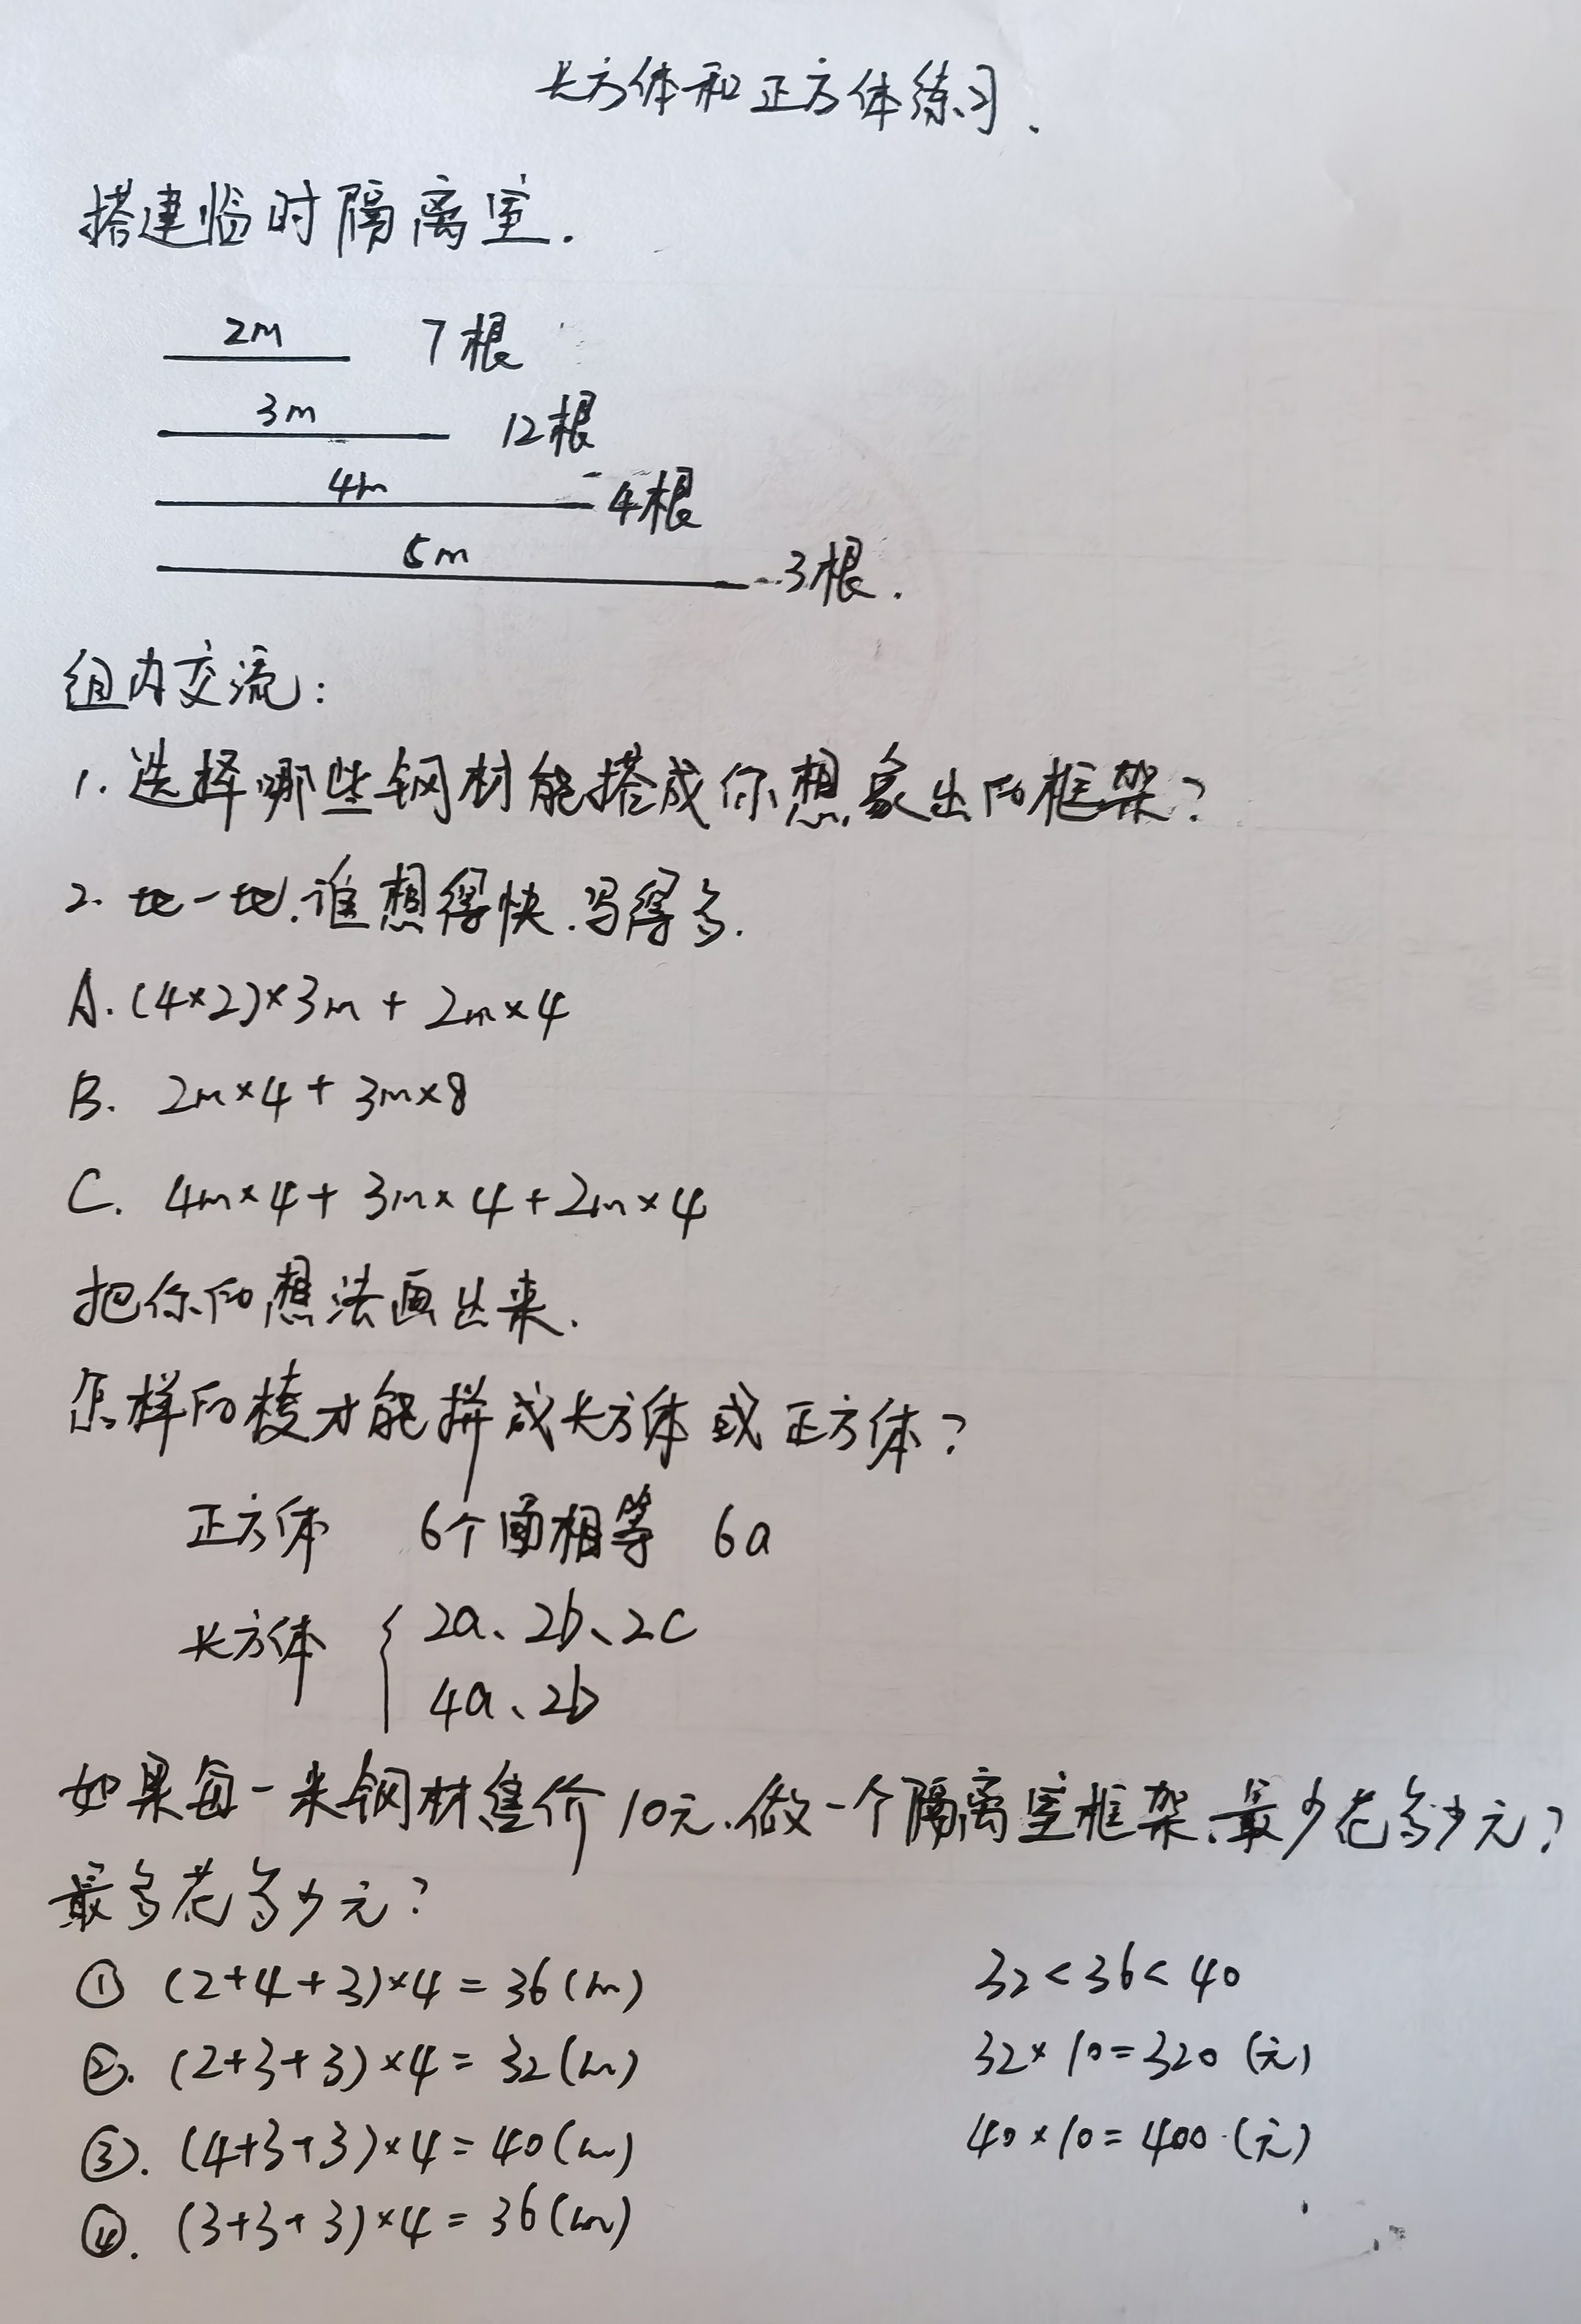 长方体和正方体练习.
搭建临时隔离室.
2m 7根
3m 12根
4m 4根
5m 3根.
组内交流:
1.选择哪些钢材能搭成你想象出的框架?
2.比一比.谁想得快.写得多.
A.(4×2)×3m+2m×4
B. 2m×4+3m×8
C. 4m×4+3m×4+2m×4
把你的想法画出来.
怎样的棱才能拼成长方体或正方体?
正方体 6个面相等 6a
长方体 { 2a、2b、2c
4a、2b
如果每一米钢材售价10元.做一个隔离室框架.最少花多少元?
最多花多少元?
① (2+4+3)×4=36(m) 32<36<40
②. (2+3+3)×4=32(m) 32×10=320(元)
③. (4+3+3)×4=40(m) 40×10=400(元)
④. (3+3+3)×4=36(m)